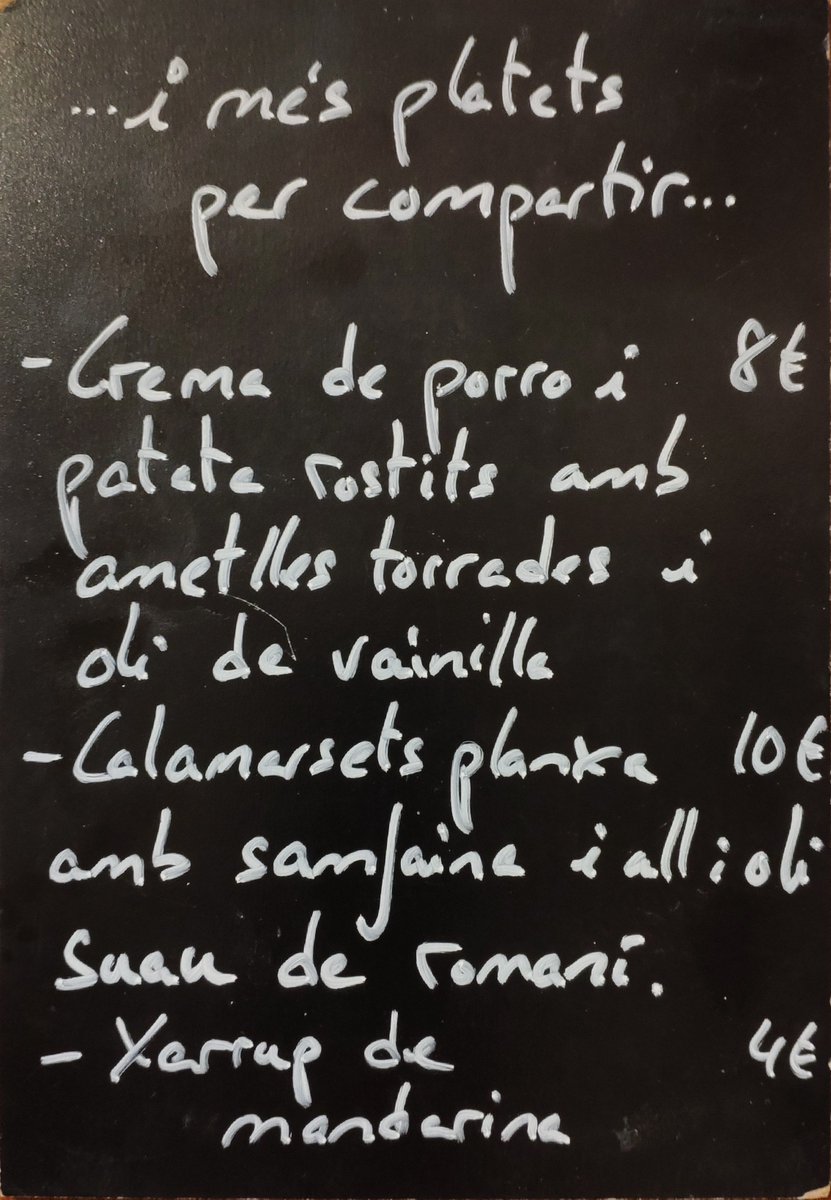 ...i més platets
per compartir...
- Crema de porro i 8€
patata rostits amb
ametlles torrades i
oli de vainilla
- Calamarsets planxa 10€
amb samfaina i all i oli
suau de romaní.
- Xarrup de 4€
mandarina